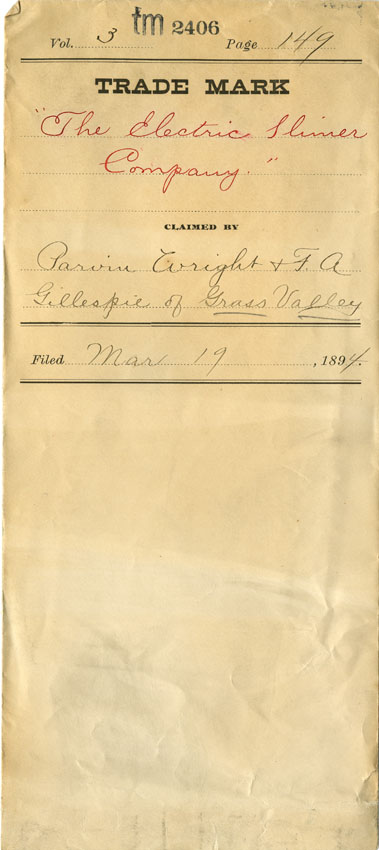 Vol. 3 tm 2406 Page 149
TRADE MARK
"The Electric Slimer
Company."
CLAIMED BY
Parvin Wright & F. A
Gillespie of Grass Valley
Filed Mar 19, 1894.